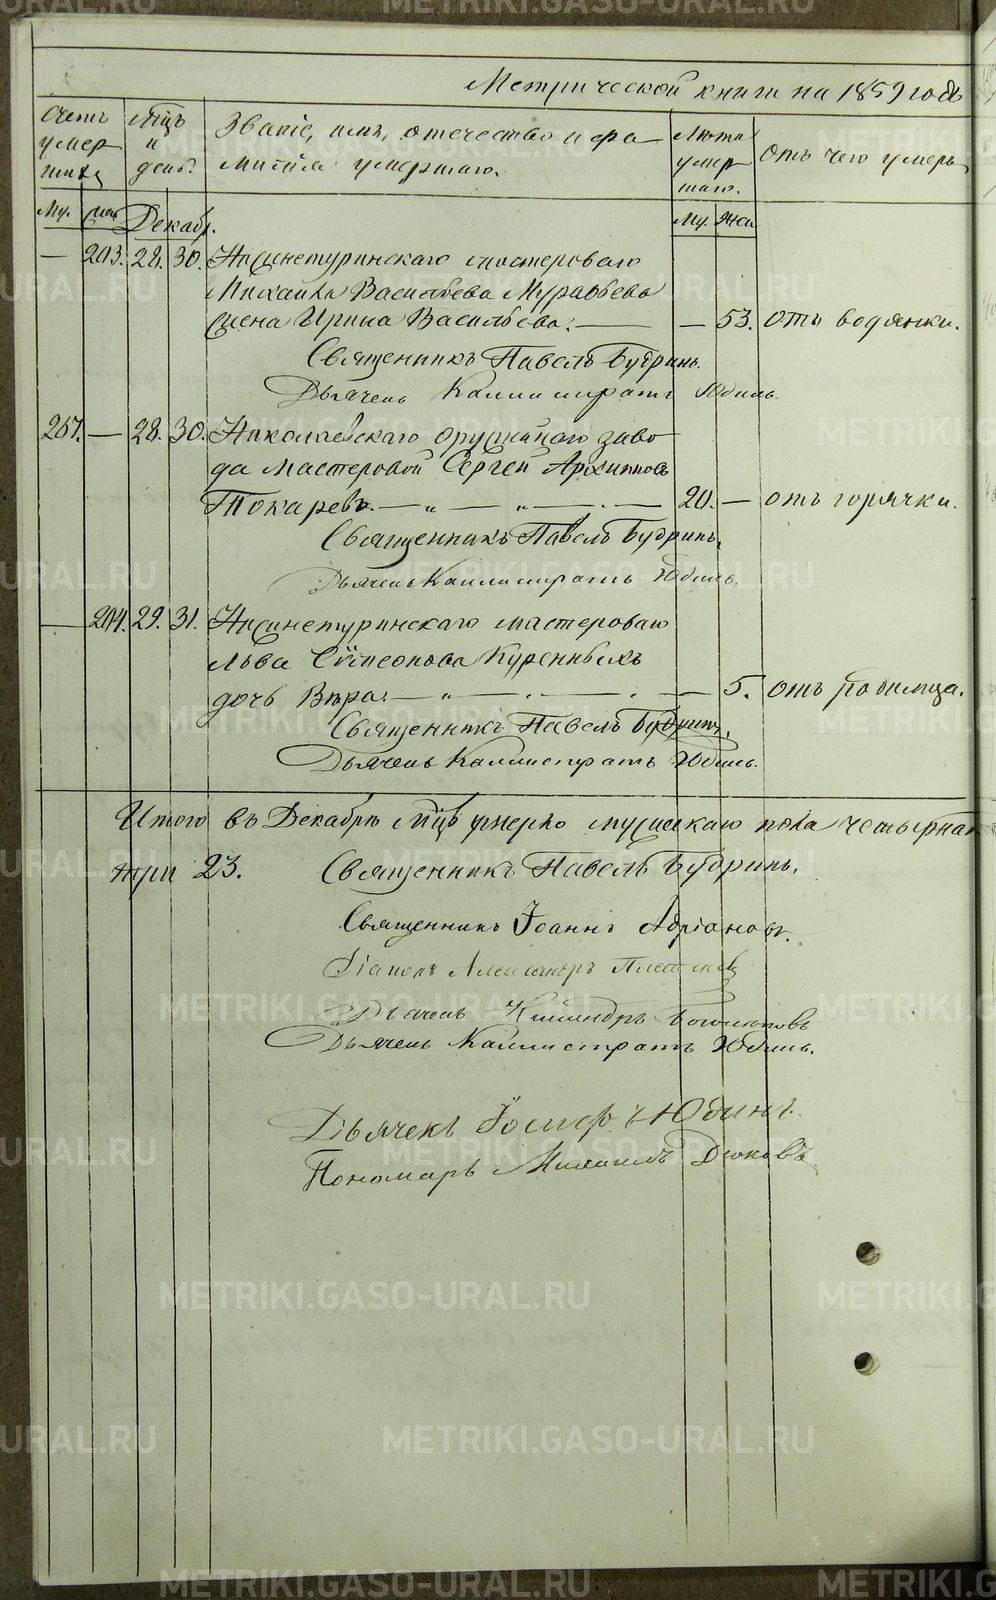 Метрической книги на 1859 годъ
Счетъ умершихъ
Мцъ и день.
Званіе, имя, отечество и фамилія умершаго.
Лѣта умершаго.
Отъ чего умеръ
Му. Жен.
Декабр.
Му. Жен.
— 203. 28. 30. Нижнетуринскаго мастероваго
Михаила Васильева Муравьева
жена Ирина Васильева. — — 53. отъ водянки.
Священникъ Павелъ Будринъ.
Дьячекъ Каллистратъ Юдинъ.
207. — 28. 30. Николаевскаго оружейнаго заво
да мастеровой Сергей Архиппов
Токаревъ. — „ — „ — . — 20. — отъ горячки.
Священникъ Павелъ Будринъ.
Дьячекъ Каллистратъ Юдинъ.
— 204. 29. 31. Нижнетуринскаго мастероваго
Льва Сѵмеонова Куренныхъ
дочь Вѣра. — „ — . — . — 5. отъ родимца.
Священникъ Павелъ Будринъ.
Дьячекъ Каллистратъ Юдинъ.
Итого въ Декабрѣ мцѣ умерло мужескаго пола четырнад
три 23. Священникъ Павелъ Будринъ.
Священникъ Іоаннъ Адріановъ.
Діаконъ Александръ
Дьячекъ
Дьячекъ Каллистратъ Юдинъ.
Дьячекъ Іосифъ Юдинъ.
Пономарь Михаилъ Дюковъ
METRIKI.GASO-URAL.RU